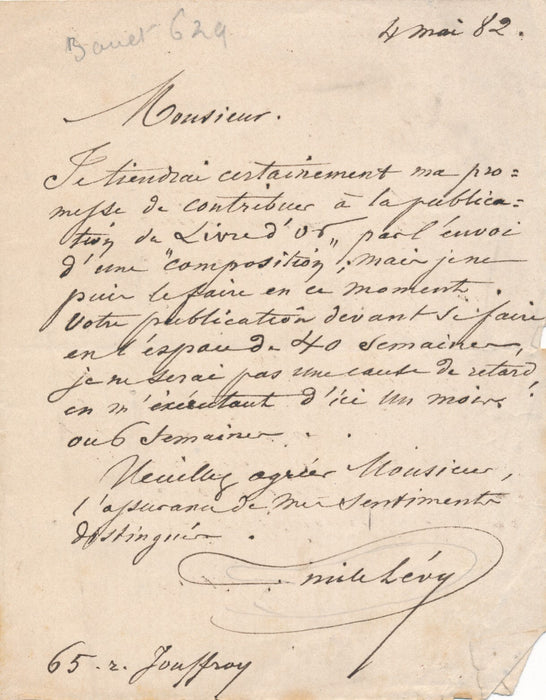 Bovet 629
4 mai 82.
Monsieur.
Je tiendrai certainement ma pro=
messe de contribuer à la publica=
tion du Livre d'or, par l'envoi
d'une "composition", mais je ne
puis le faire en ce moment.
Votre publication devant se faire
en l'espace de 40 semaines,
je ne serai pas une cause de retard
en m'exécutant d'ici un mois
ou 6 semaines.
Veuillez agréer Monsieur,
l'assurance de mes sentiments
distingués.
Emile Lévy
65. r. Jouffroy